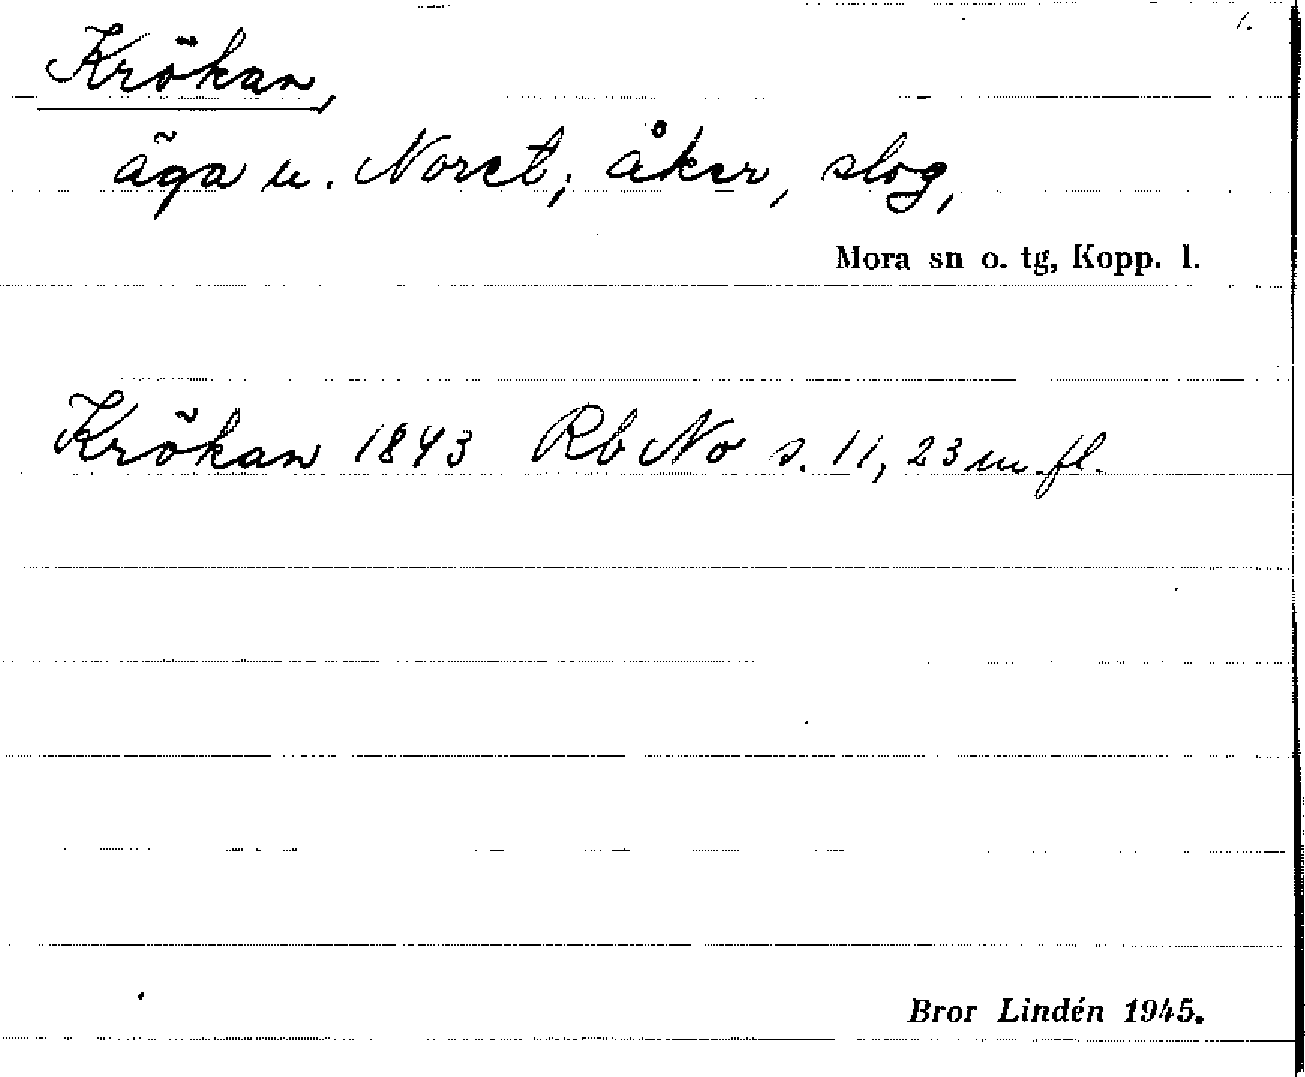 1.
Krökan,
äga u. Noret; åker, slog,
Mora sn o. tg, Kopp. l.
Krökan 1843 Rb No s. 11, 23 m. fl.
Bror Lindén 1945.